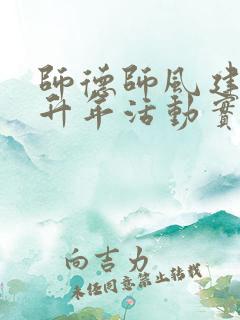 師德師風建
升年活動實
向吉力
未經同意禁止轉載